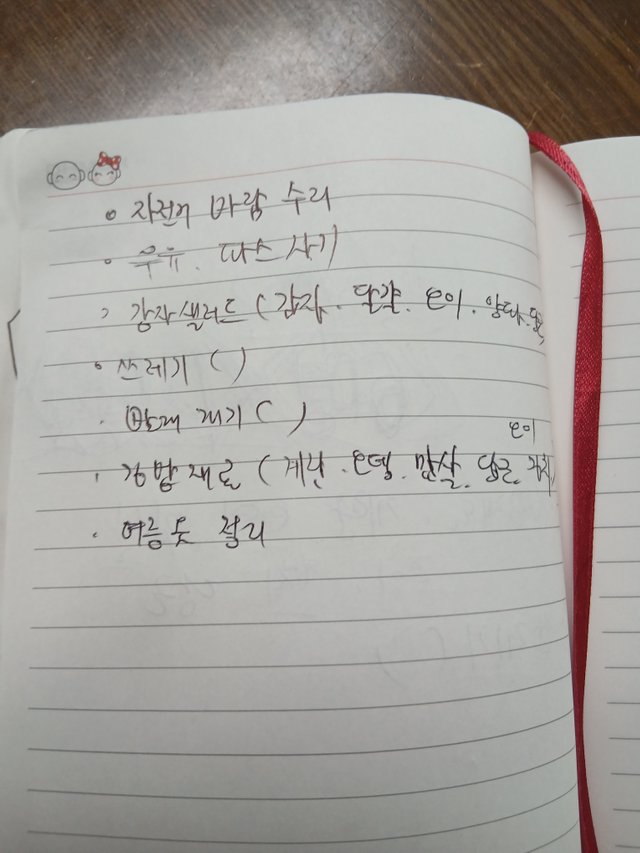 자전거 바람 수리
우유. 파스 사기
감자샐러드 (감자. 달걀. 오이. 양파. 당근)
쓰레기 ( )
빨래 개기 ( )
오이
김밥재료 (계란. 오뎅. 맛살. 당근. 김치)
여름옷 정리